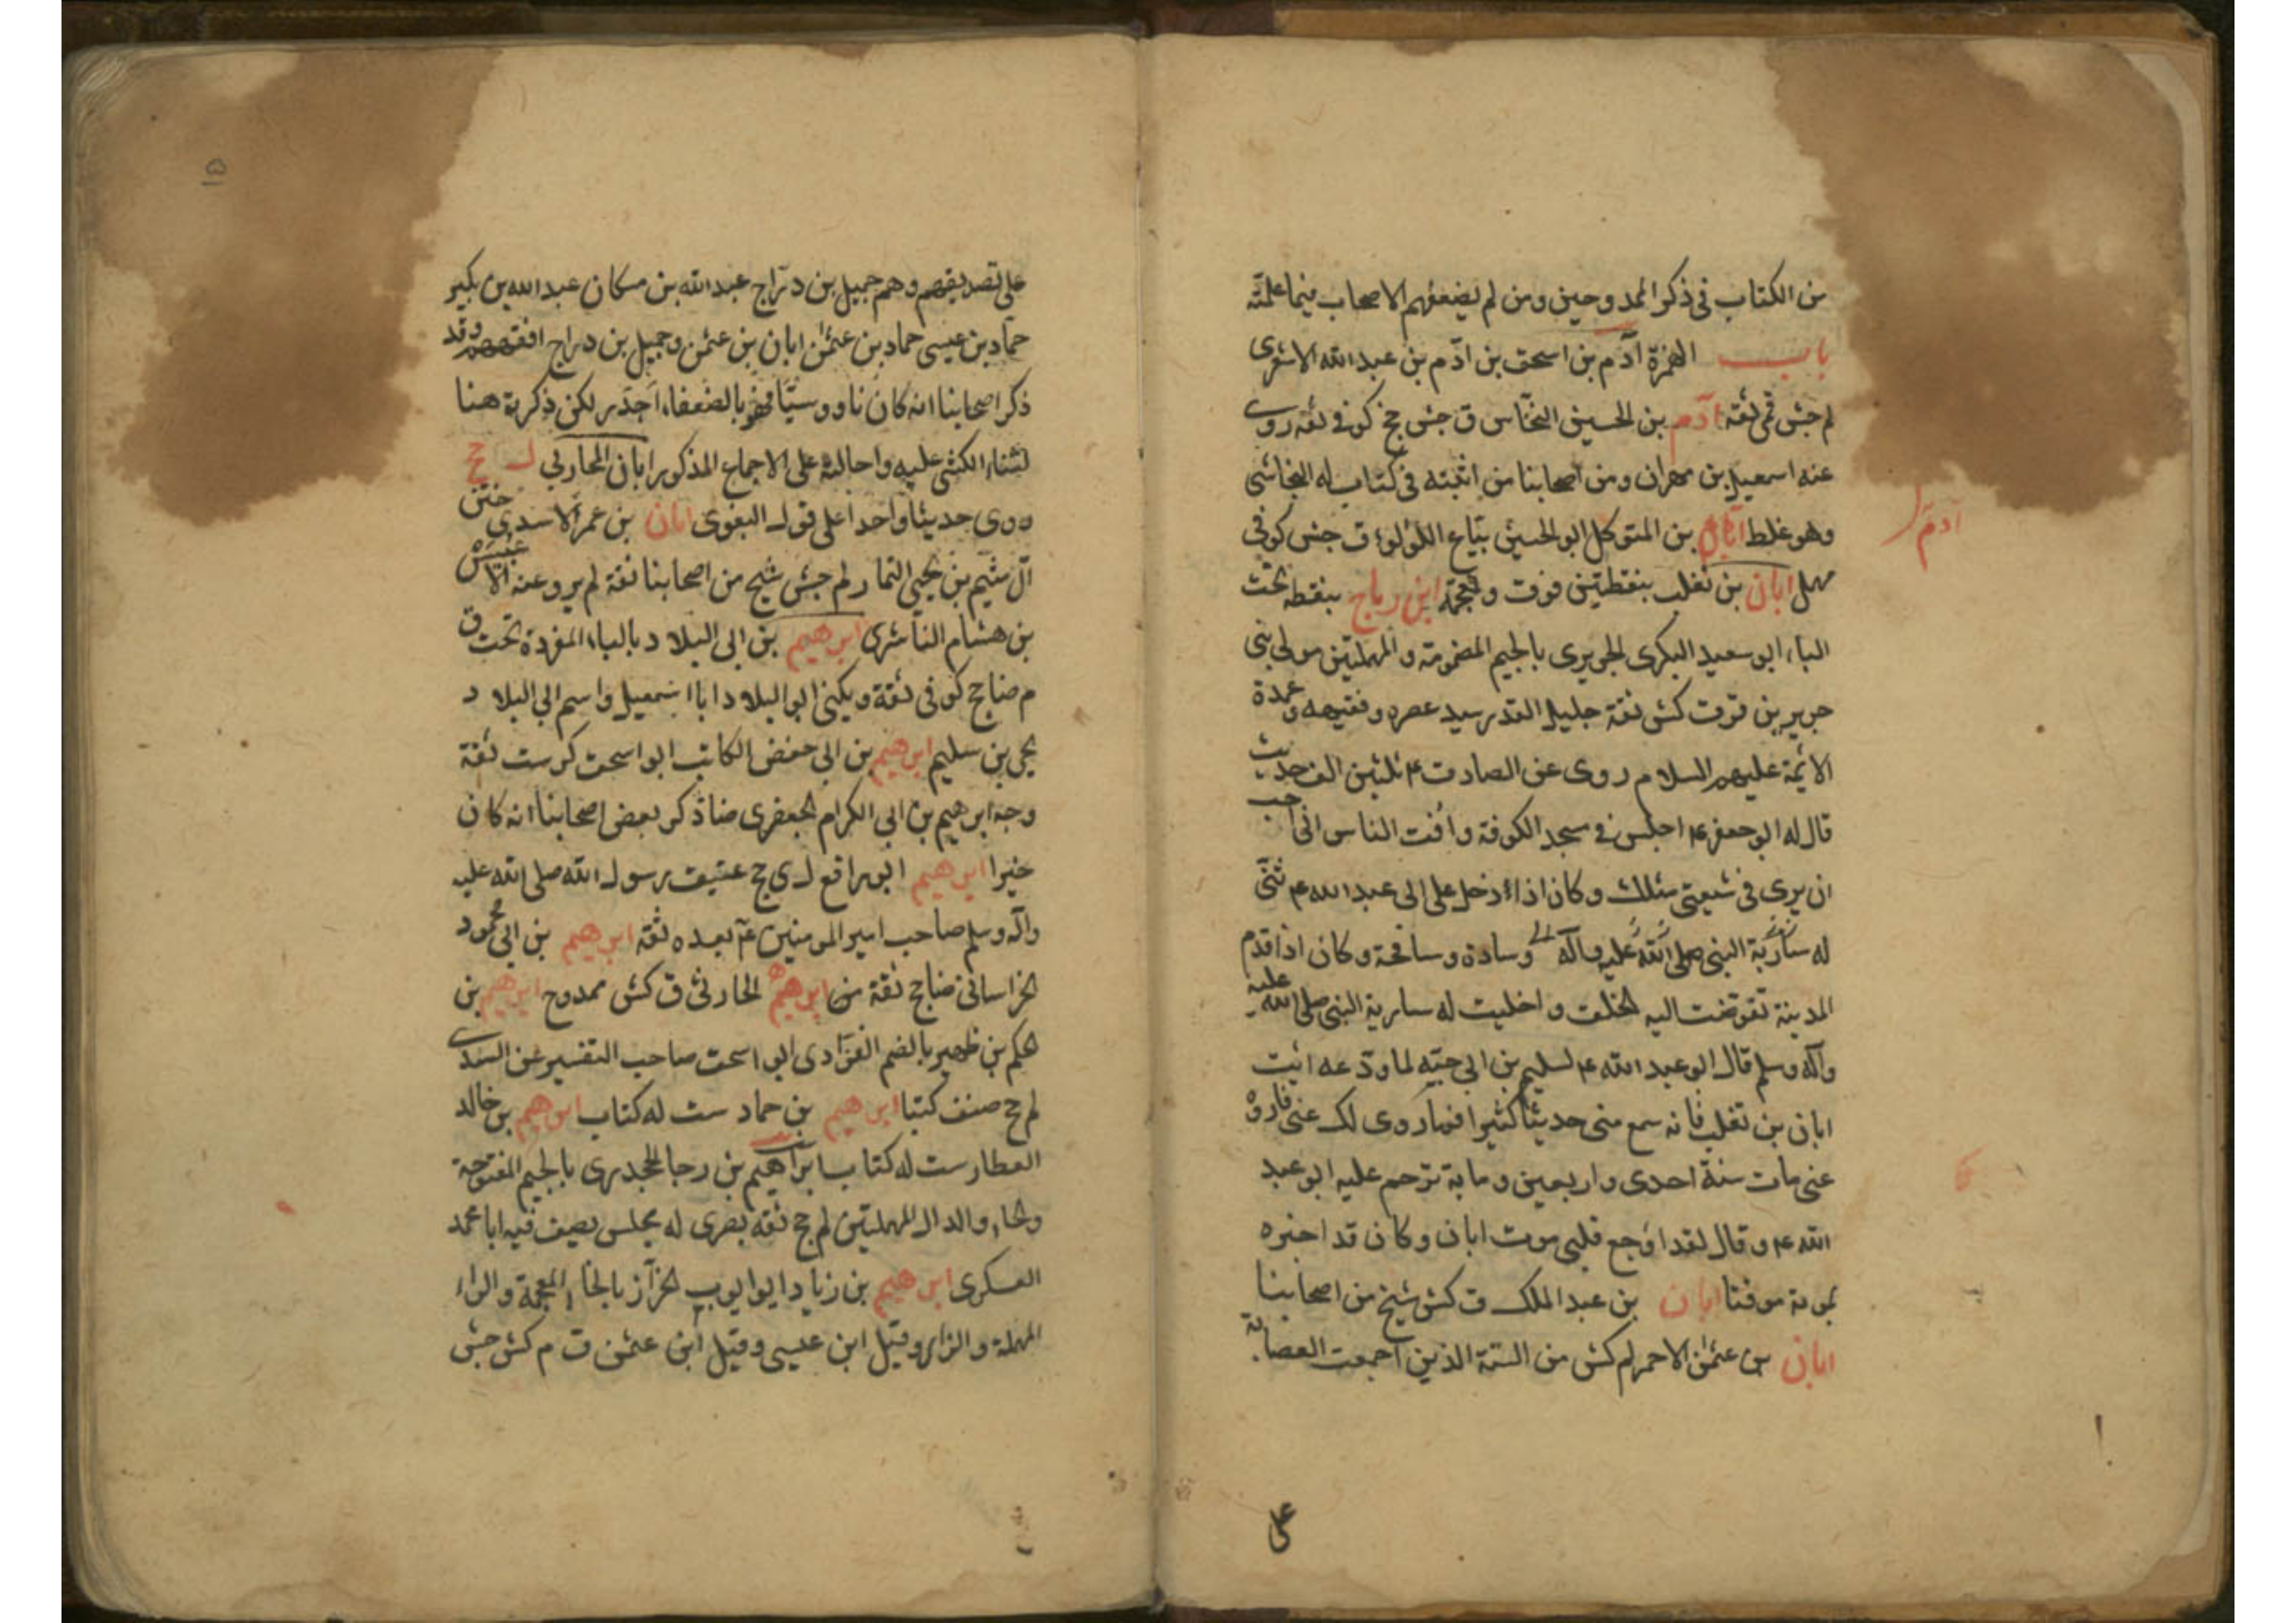 من الكتاب في ذكر الممدوحين ومن لم يضعفهم الاصحاب فيما علمته
باب الهمزة آدم بن اسحق بن ادم بن عبد الله الاشعرى
لم جش قمى ثقة آدم بن الحسين النخاس ق جش جخ كوفى ثقه روى
عنه اسمعيل بن مهران ومن اصحابنا من اثبته فى كتاب له النجاشى
وهو غلط بن المتوكل ابو الحسين بياع اللؤلؤ ق جش كوفى
آدم
مهمل ابان بن تغلب بنقطتين فوق ومعجمة ابن رباح بنقطه تحت
الباء ابو سعيد البكرى الجريرى بالجيم المضمومة والمهملتين مولى بنى
جرير بن قرق كش ثقة جليل القدر سيد عصره وفقيهه وعمدة
الائمة عليهم السلام روى عن الصادق ع ثلثين الف حديث
قال له ابو جعفر ع اجلس فى مسجد الكوفة وافت الناس انى احب
ان يرى فى شيعتى مثلك وكان اذا دخل على ابى عبد الله ع ثنى
له سارية النبى صلى الله عليه وآله وسادة وسافحة وكان اذا قدم
المدينة تقوضت اليه الخلق واخليت له سارية النبى صلى الله عليه
وآله وسلم قال ابو عبد الله ع لسليم بن ابى حبه لما ودعه ائت
ابان بن تغلب فانه سمع منى حديثا كثيرا فما روى لك عنى فاروه
عنى مات سنة احدى واربعين وماية ترحم عليه ابو عبد
الله ع وقال لقد اوجع قلبى موت ابان وكان قد اخبره
بموته موقتا ابان بن عبد الملك ق كش شيخ من اصحابنا
ابان بن عثمن الاحمر لم كش من الستة الذين اجمعت العصابة
على
۱۵
على تصديقهم وهم جميل بن دراج عبد الله بن مسكان عبد الله بن بكير
حماد بن عيسى حماد بن عثمن ابان بن عثمن وجميل بن دراج افقههم وقد
ذكر اصحابنا انه كان ناووسيا فهو بالضعفاء اجدر لكن ذكرته هنا
لثناء الكشى عليه واحالته على الاجماع المذكور ابان المحاربى ل ج
روى حديثا واحدا على قول البغوى ابان بن عمر الاسدى ختن
آل ميثم بن يحيى التمار لم جش شيخ من اصحابنا ثقة لم يرو عنه الا عبيس
بن هشام الناشرى ابرهيم بن ابى البلاد بالباء المفردة تحت ق
م ضا جخ كوفى ثقة ويكنى ابو البلاد ابا اسمعيل واسم ابى البلاد
يحيى بن سليم ابرهيم بن ابى حفص الكاتب ابو اسحق كر ست ثقة
وجه ابرهيم بن ابى الكرام الجعفرى ضا ذكر بعض اصحابنا انه كان
خيرا ابرهيم ابو رافع ل ى ج عتيق رسول الله صلى الله عليه
وآله وسلم صاحب امير المومنين ع بعده ثقة ابرهيم بن ابى محمود
الخراسانى ضا جخ ثقة من ابرهيم الحارثى ق كش ممدوح ابرهيم بن
الحكم بن ظهير بالضم الفزارى ابو اسحق صاحب التفسير عن السدى
لم ج صنف كتبا ابرهيم بن حماد ست له كتاب ابرهيم بن خالد
العطار ست له كتاب ابراهيم بن رجا الجحدرى بالجيم المفتوحة
والحاء والدال المهملتين لم ج ثقة بصرى له مجلس يصف فيه ابا محمد
العسكرى ابرهيم بن زياد ابو ايوب الخزاز بالخاء المعجمة والراء
المهملة والزاى وقيل ابن عيسى وقيل ابن عثمن ق م كش جش